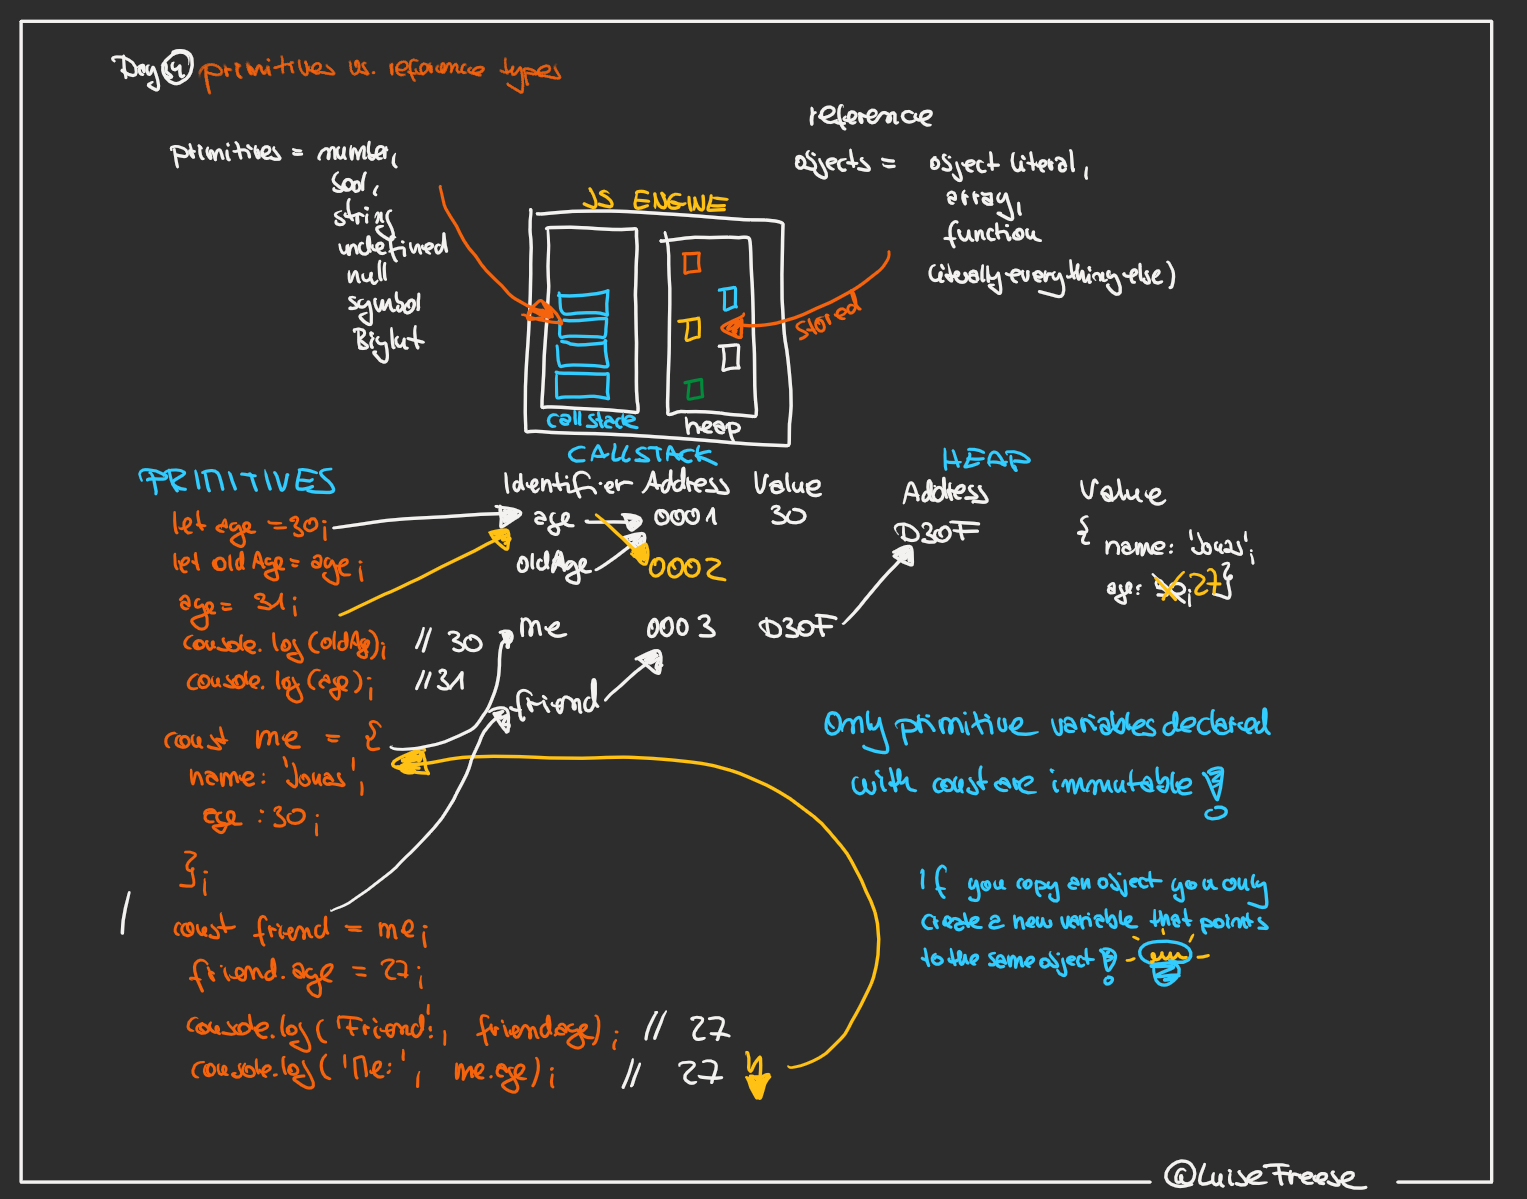 Day 14 primitives vs. reference types
primitives = number,
bool,
string
undefined
null
symbol
BigInt
reference
objects = object literal,
array,
function
(literally everything else)
JS ENGINE
stored
callstack
heap
PRIMITIVES
let age = 30;
let oldAge = age;
age = 31;
console.log(oldAg); // 30
console.log(age); // 31
const me = {
name: 'Jonas',
age : 30;
};
const friend = me;
friend.age = 27;
console.log('Friend:', friend.age); // 27
console.log('Me:', me.age); // 27
CALLSTACK
Identifier Address Value
age 0001 30
oldAge 0002
me 0003 D30F
friend
HEAP
Address Value
D30F { name: 'Jonas';
age: 30; 27}
Only primitive variables declared
with const are immutable !
If you copy an object you only
create a new variable that points
to the same object !
@LuiseFreese